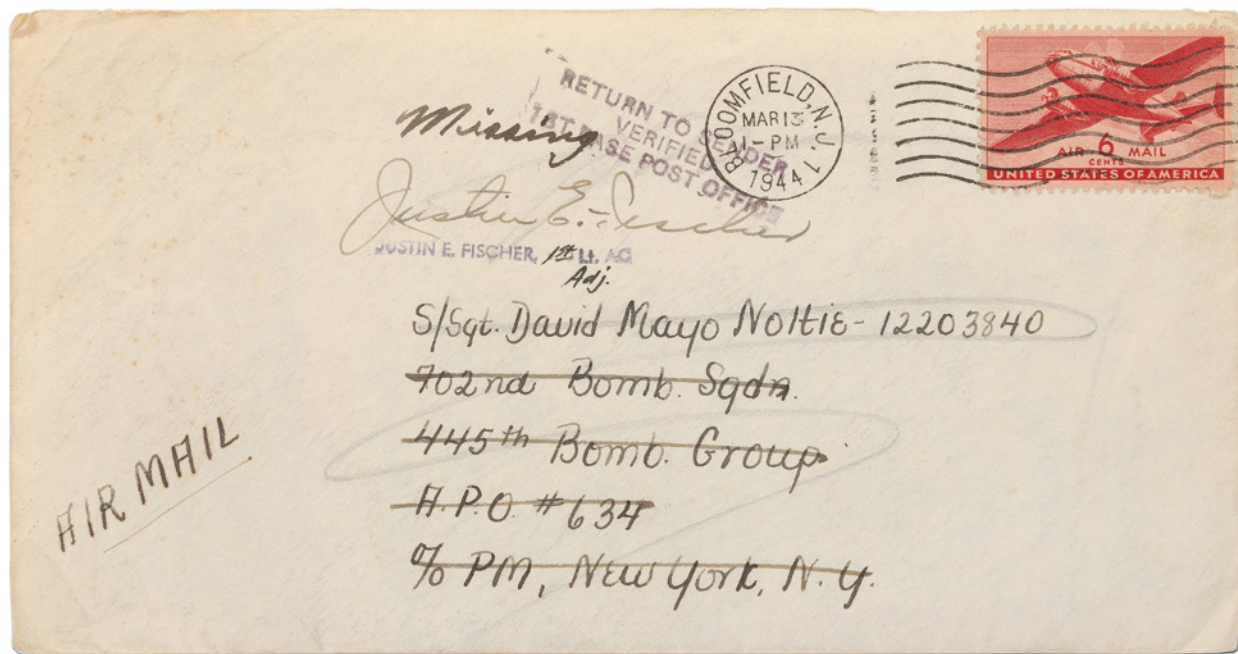 Missing
RETURN TO SENDER
VERIFIED
1ST BASE POST OFFICE
BLOOMFIELD, N.J. 1
MAR 13
1-PM
1944
AIR 6 MAIL
CENTS
UNITED STATES OF AMERICA
Justin E. Fischer
JUSTIN E. FISCHER, 1st Lt. AC
Adj.
S/Sgt. David Mayo Noltie - 12203840
702nd Bomb. Sqdn.
445th Bomb. Group
A.P.O. #634
c/o PM, New York, N.Y.
AIR MAIL